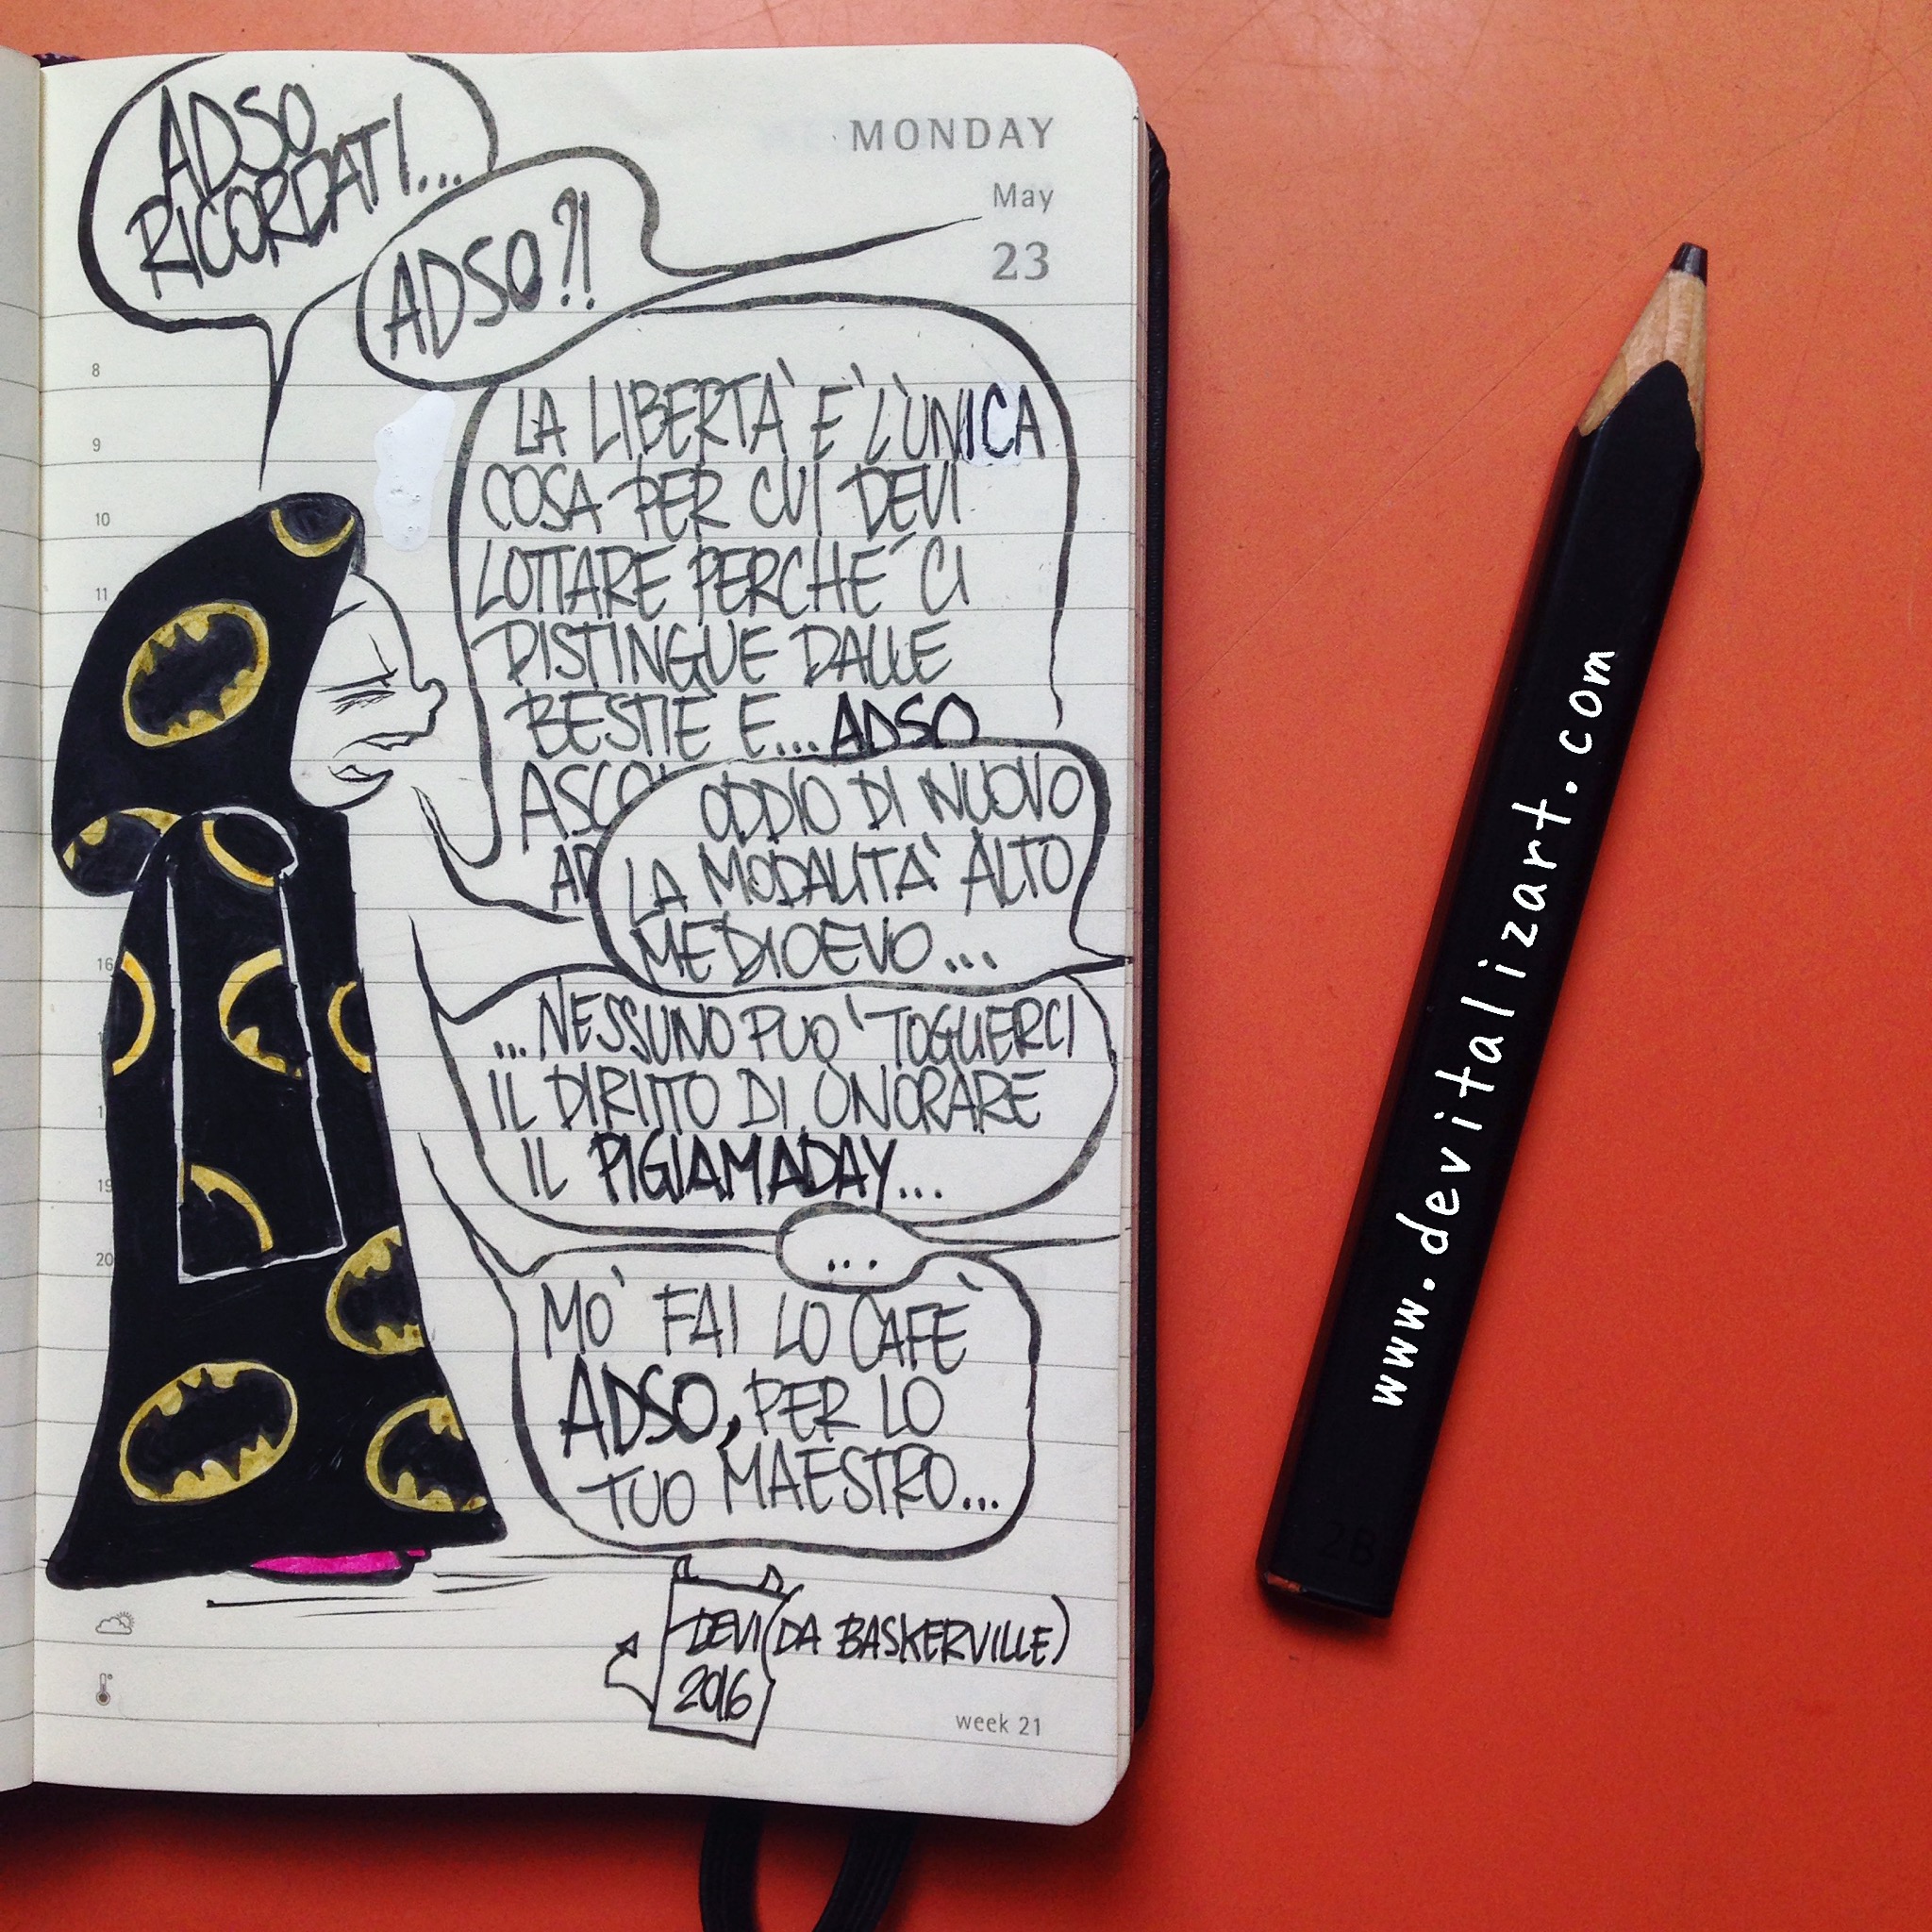 MONDAY
May
23
ADSO
RICORDATI...
ADSO?!
LA LIBERTA' E' L'UNICA
COSA PER CUI DEVI
LOTTARE PERCHE' CI
DISTINGUE DALLE
BESTIE E... ADSO
ASCO
AD
ODDIO DI NUOVO
LA MODALITA' ALTO
MEDIOEVO...
...NESSUNO PUO' TOGLIERCI
IL DIRITTO DI ONORARE
IL PIGIAMADAY...
...
MO' FAI LO CAFE'
ADSO, PER LO
TUO MAESTRO...
DEVI (DA BASKERVILLE)
2016
8
9
10
11
16
19
20
week 21
www.devitalizart.com
2B